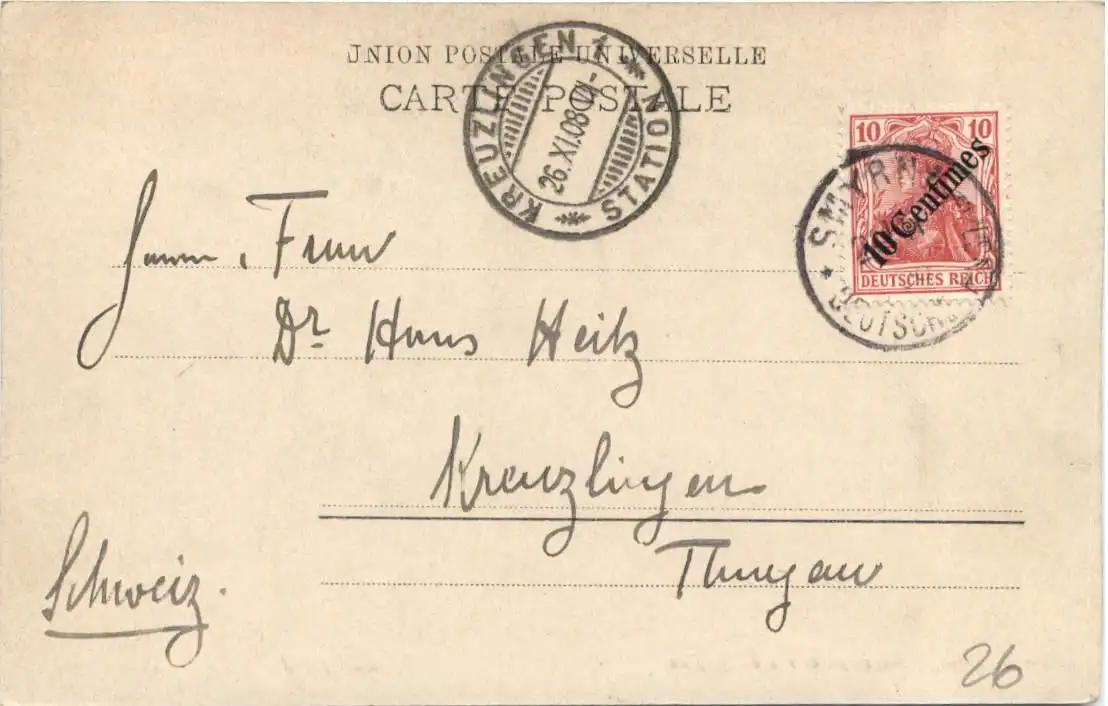 UNION POSTALE UNIVERSELLE
CARTE POSTALE
KREUZLINGEN 1 STATION
26.XI.08
10 10
10 Centimes
DEUTSCHES REICH
SMYRNA
DEUTSCHE
Frau
Dr Hans Heitz
Kreuzlingen
Thurgau
Schweiz.
26